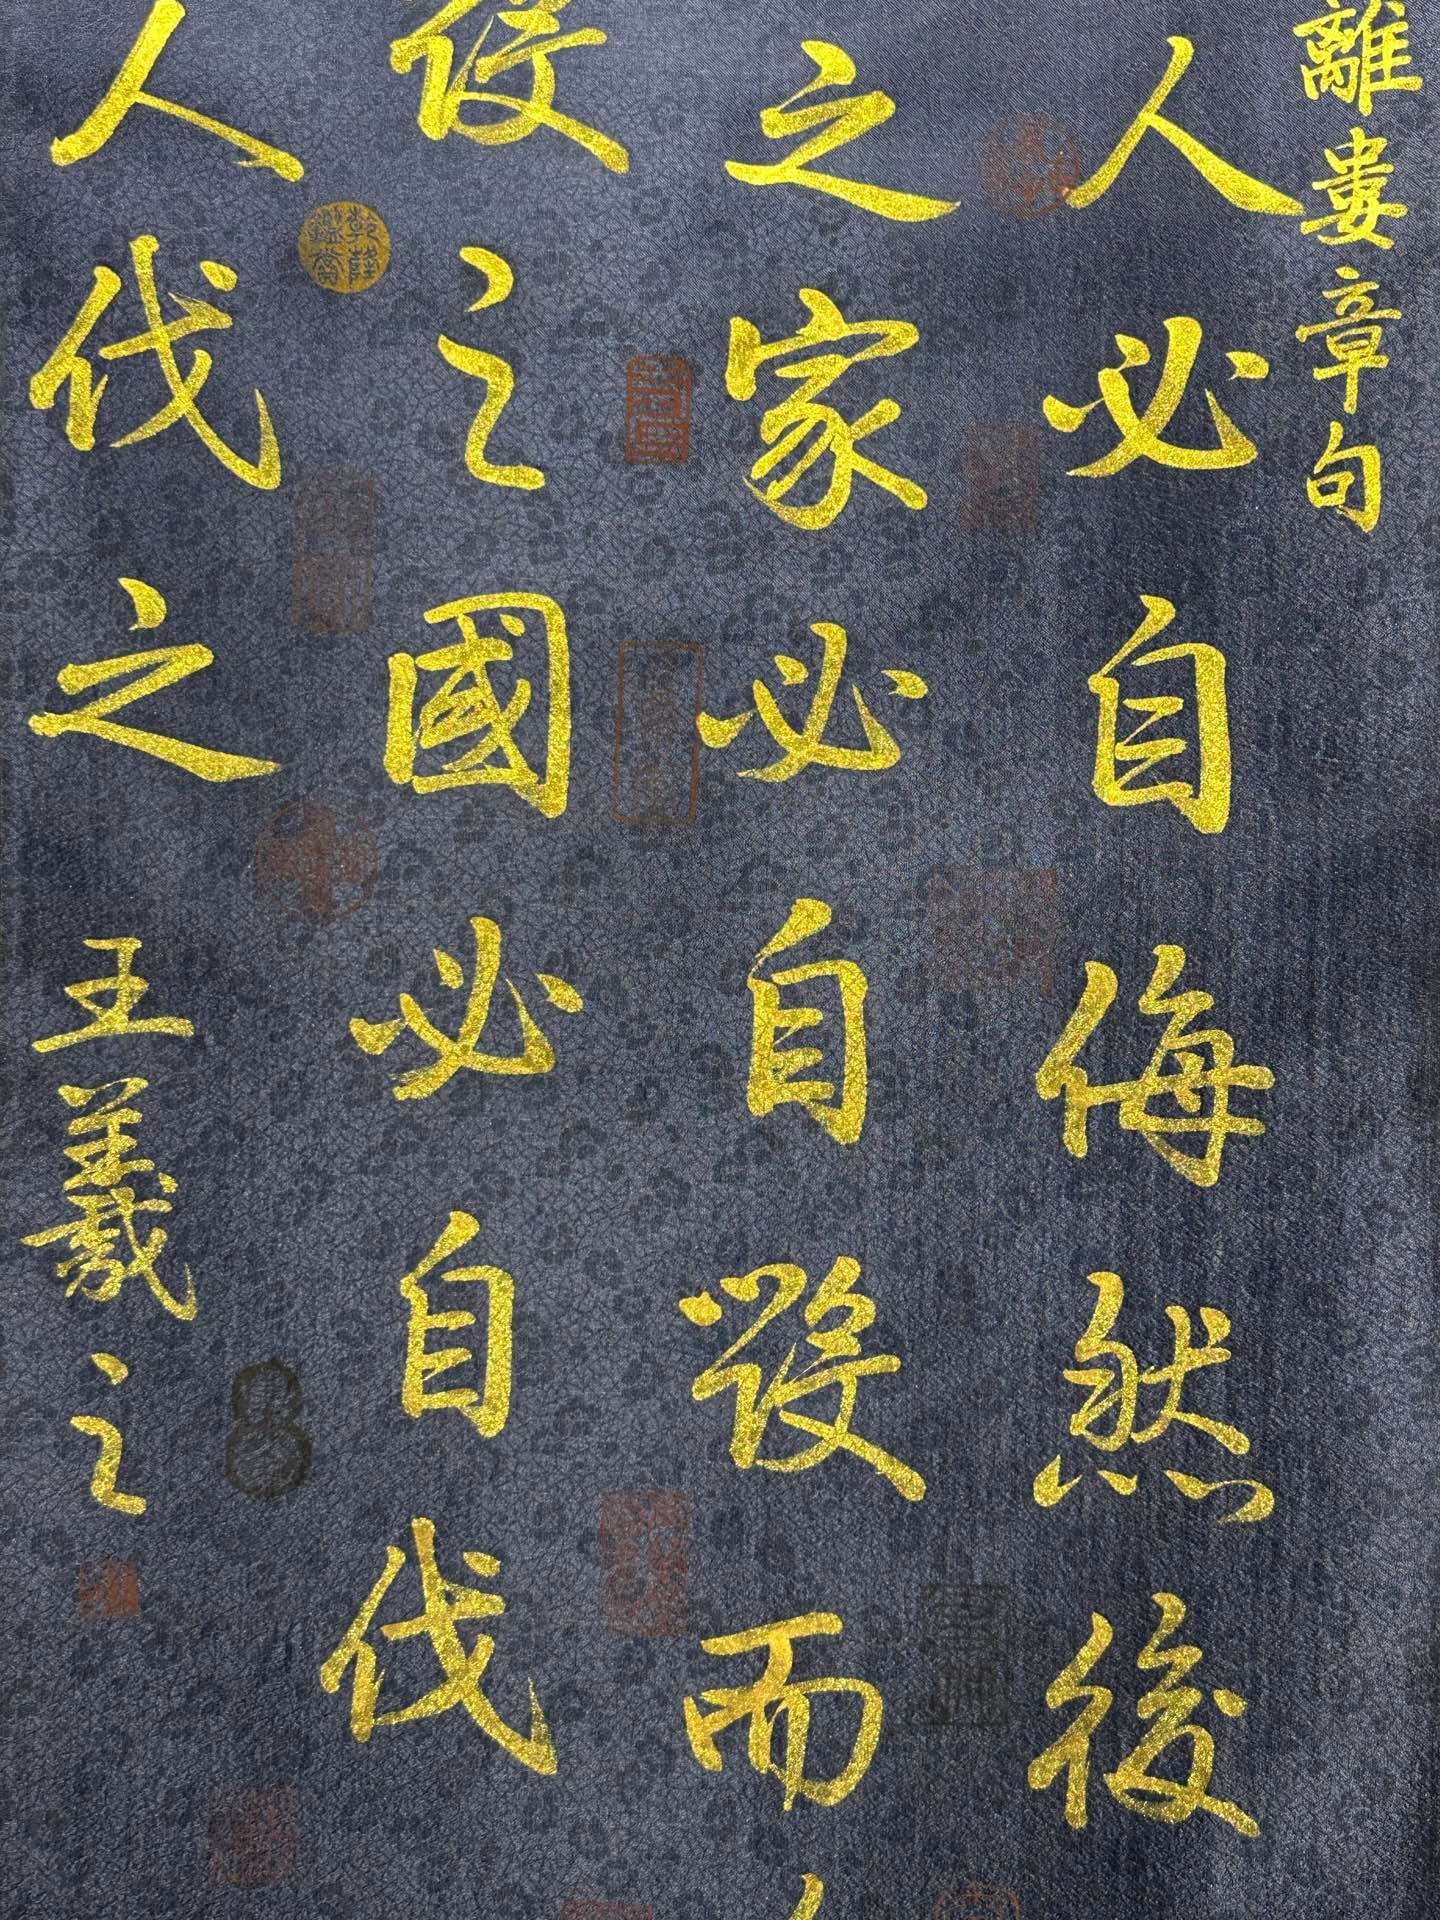 離婁章句
人必自侮然後
之家必自毀而
毀之國必自伐
人伐之
王羲之